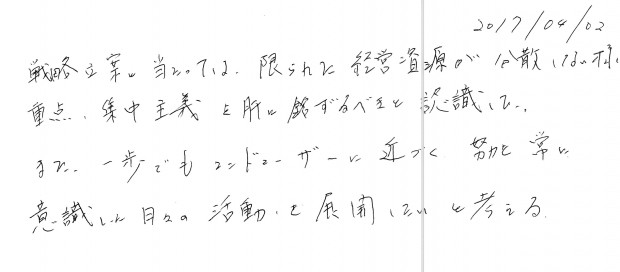 2017/04/02
戦略立案に当たっては、限られた経営資源が分散しない様、
重点、集中主義を肝に銘ずるべきと認識した。
また、一歩でもエンドユーザーに近づく努力を常に
意識した日々の活動を展開したいと考える。